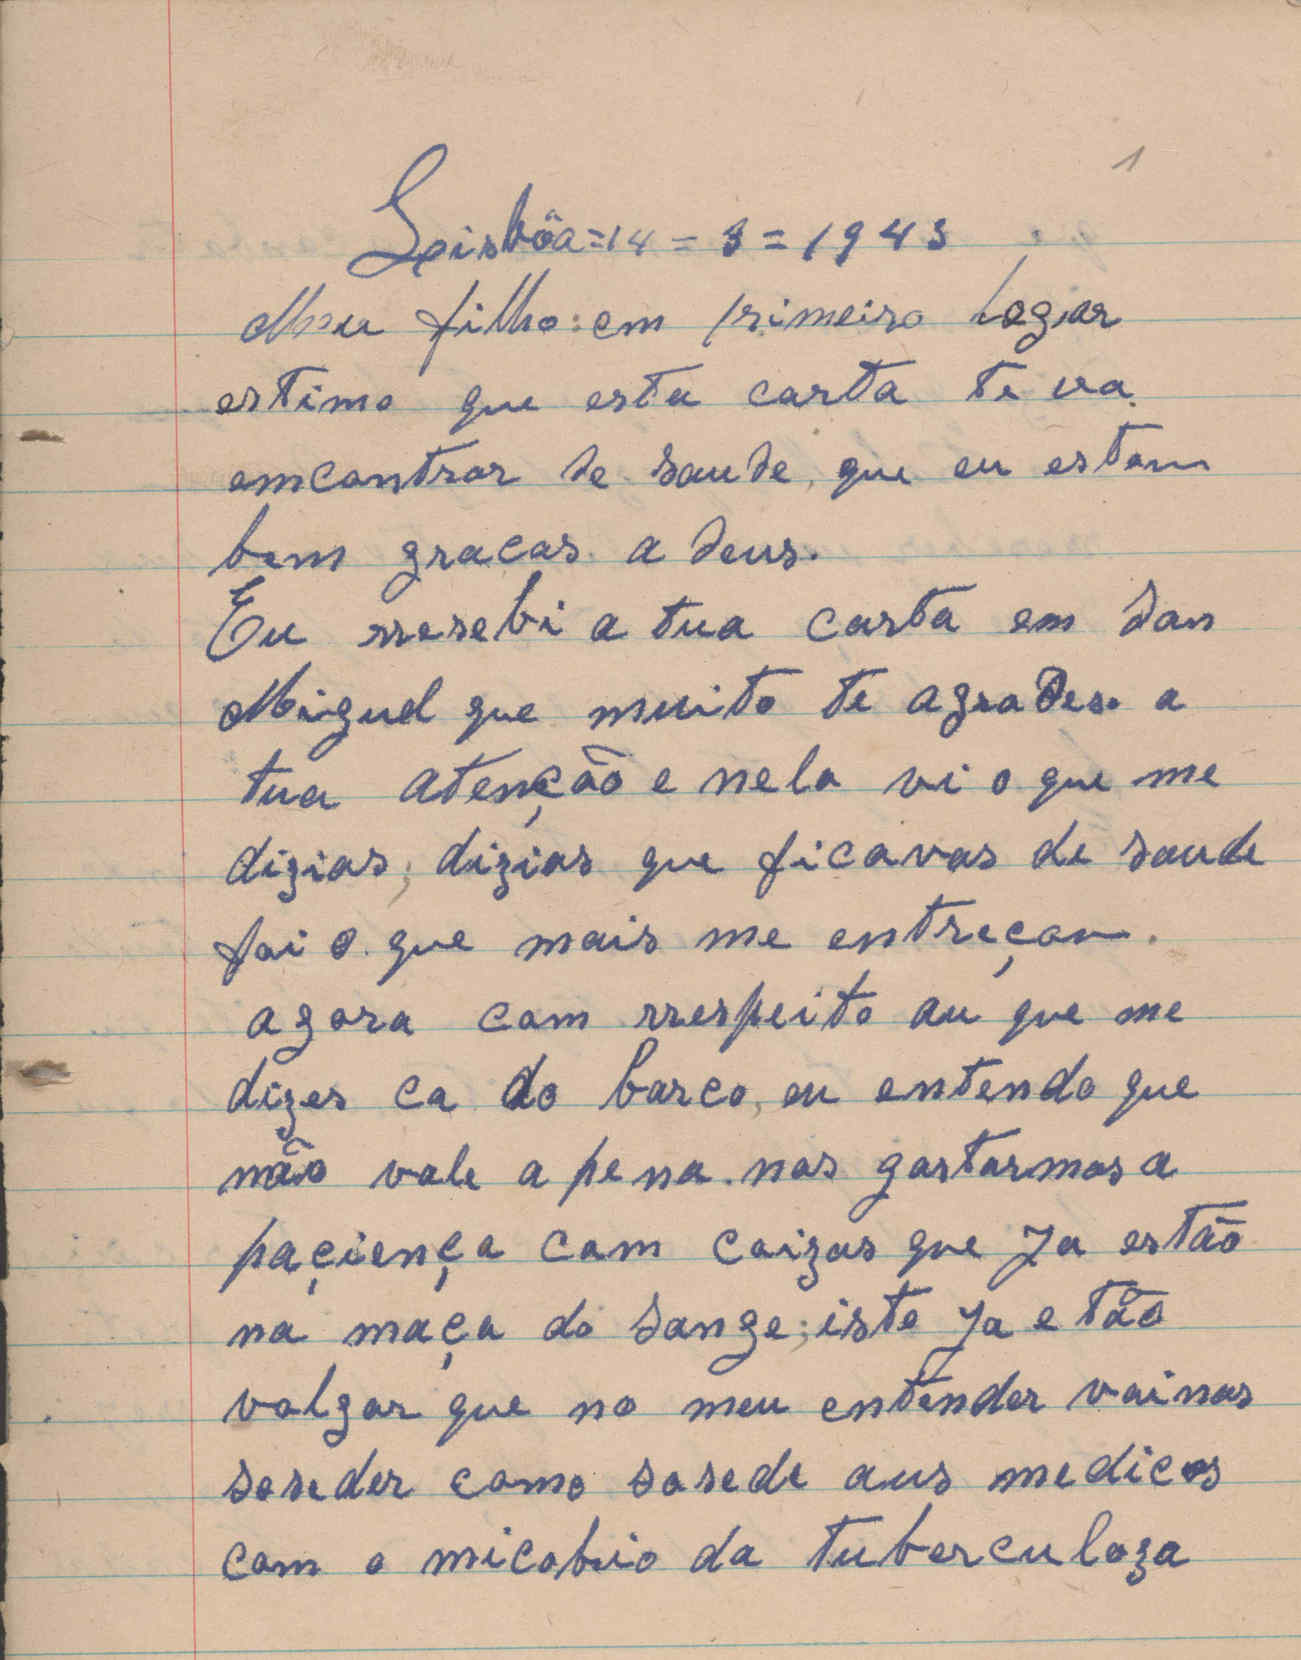 1
Leisbôa=14=3=1943
Meu filho: em primeiro logar
estimo que esta carta te va
emcontrar de saude, que eu estou
bem gracas a deus.
Eu rresebi a tua carta em San
Miguel que muito te agradeso a
tua atenção e nela vi o que me
dizias, dizias que ficavas de saude
foi o que mais me entreçou.
agora com rrespeito au que me
dizes ca do barco, eu entendo que
não vale a pena nos gastarmos a
paçiença com coizas que Ja estão
na maça do sange; iste Ja e tão
volgar que no meu entender vainos
soseder como sosede aus medicos
com o micobio da tuberculoza